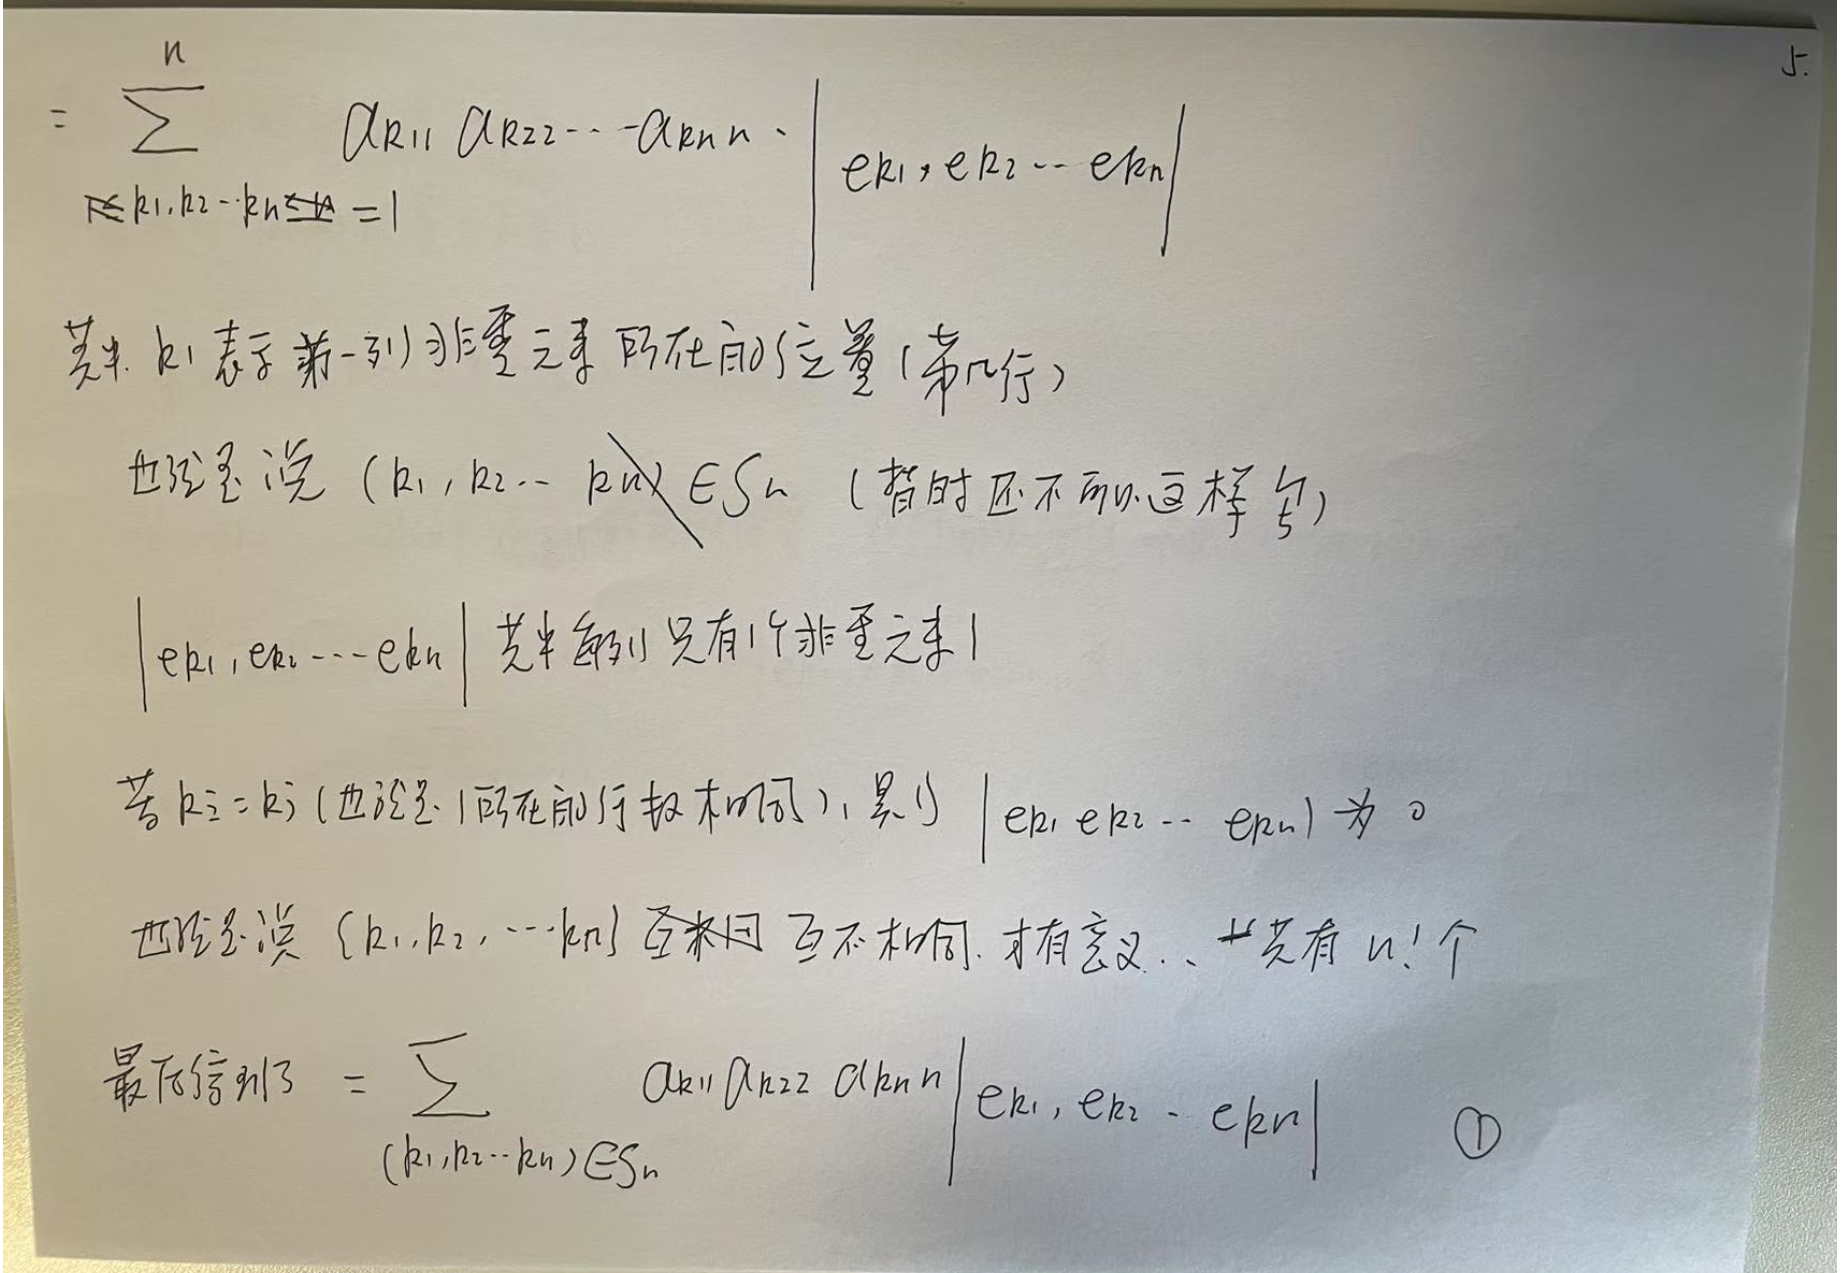 5.
n
= ∑ a_{k1 1} a_{k2 2} ... a_{kn n} · | e_{k1}, e_{k2} ... e_{kn} |
k1, k2 ... kn = 1
其中 k1 表示第一列非零元素所在的位置 (第几行)
也就是说 (k1, k2 ... kn) ∈ Sn (暂时还不可以这样写)
| e_{k1}, e_{k2} ... e_{kn} | 其中每列只有1个非零元素1
若 ki = kj (也就是1所在的行数相同), 则 | e_{k1} e_{k2} ... e_{kn} | 为 0
也就是说 {k1, k2, ... kn} 互不相同 才有意义.. 一共有 n! 个
最后得到了 = ∑ a_{k1 1} a_{k2 2} a_{kn n} | e_{k1}, e_{k2} .. e_{kn} | ①
(k1, k2 ... kn) ∈ Sn